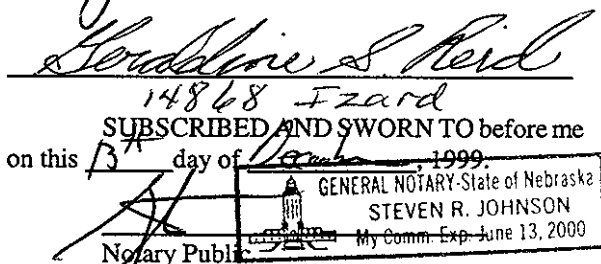 Geraldine S Reid
14868 Izard
SUBSCRIBED AND SWORN TO before me
on this 13th day of December, 1999.
GENERAL NOTARY-State of Nebraska
STEVEN R. JOHNSON
My Comm. Exp. June 13, 2000
Notary Public